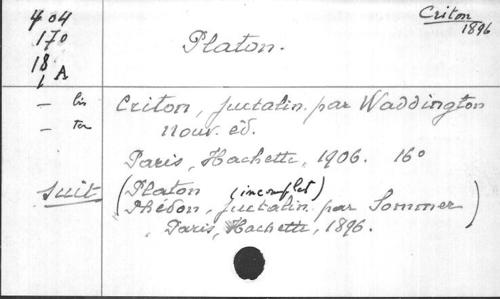 404
170
18 A
1
Criton
1896
Platon.
— bis
— ter
Criton, juxtalin. par Waddington
nouv. éd.
Paris, Hachette, 1906. 16°
suit
(Platon (incomplet)
Phédon, juxtalin. par Sommer)
Paris, Hachette, 1896.